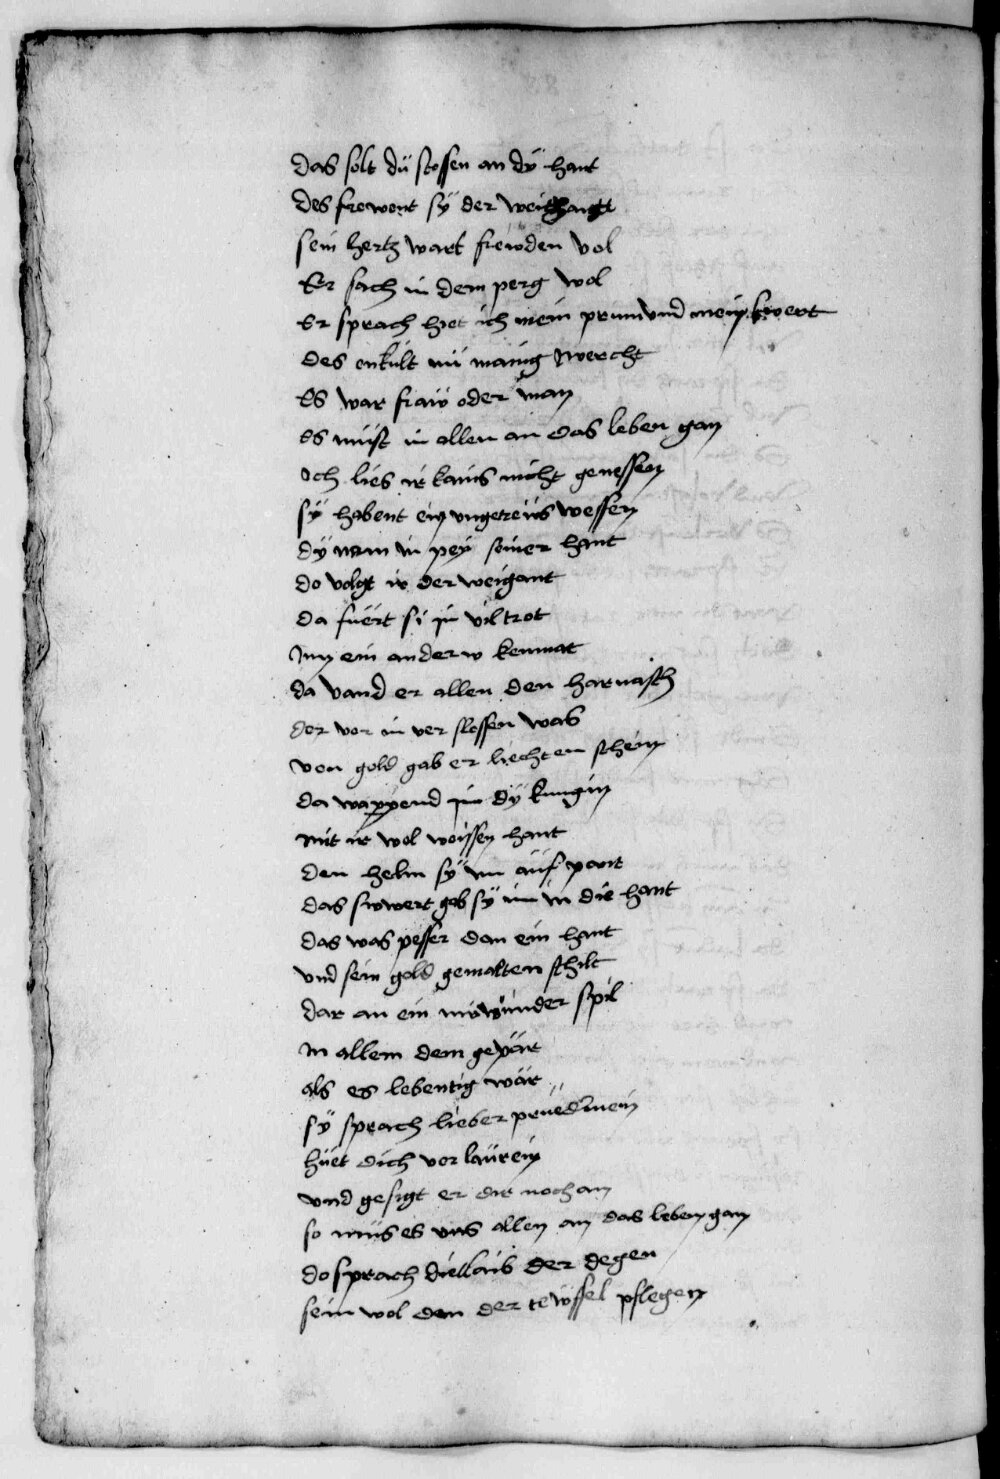 das solt dü stossen an dÿ hant
des frewent sÿ der weithantt
sein hertz wart frewden vol
Er sach in dem perg wol
Er sprach het ich mein prünn vnd mein swert
des enkült nü manig wercht
Es war fraw oder man
es müst in allen an das leben gan
Och lies ir kains nicht genessen
sÿ habent ein vngetrews wessen
dÿ nam in peÿ seiner hant
do volgt ir der weigant
da fuert si in vil trot
Inn ein anderw kemnat
da vand er allen den harnasch
der vor in ver slossen was
von gold gab er liechten schein
da wappend in dÿ kungin
mit ir wol weissen hant
den helm sÿ im auf pant
das swert gab sÿ im in die hant
das was pesser dan ein hant
vnd sein gold gemalten schilt
dar an ein wunder spil
in allem dem gepär
als es lebentig wär
sÿ sprach lieber prüeder mein
hüet dich vor laürein
vnd gesigt er dir noch an
so müs es vns allen an das leben gan
do sprach diellaib der degen
sein wol den der tewffel pflegen